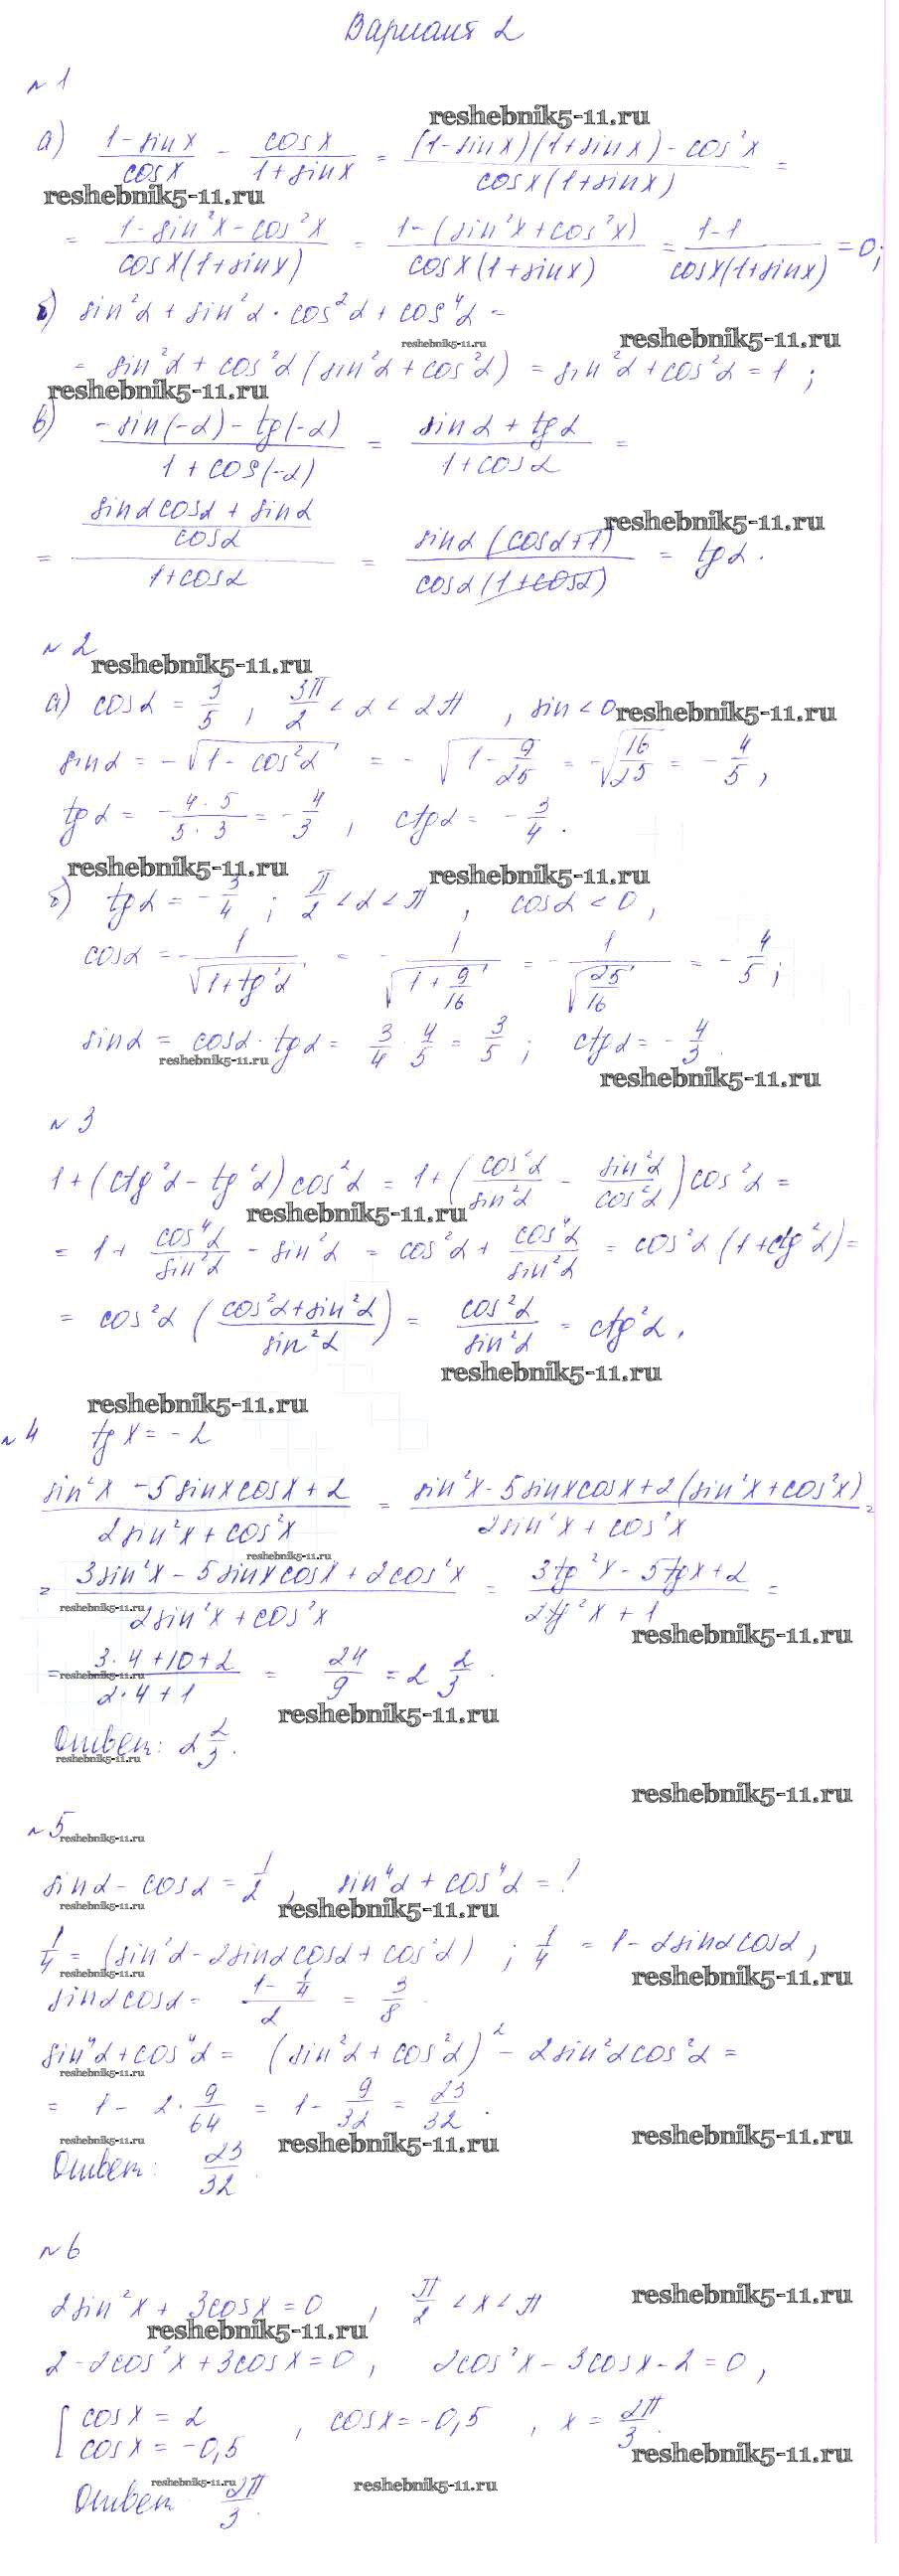 Вариант 2
№ 1
reshebnik5-11.ru
а) (1-sin x)/(cos x) - (cos x)/(1+sin x) = ((1-sin x)(1+sin x)-cos²x)/(cos x(1+sin x)) =
reshebnik5-11.ru
= (1-sin²x-cos²x)/(cos x(1+sin x)) = (1-(sin²x+cos²x))/(cos x(1+sin x)) = (1-1)/(cos x(1+sin x)) = 0;
б) sin²α + sin²α · cos²α + cos⁴α =
reshebnik5-11.ru
reshebnik5-11.ru
= sin²α + cos²α (sin²α + cos²α) = sin²α + cos²α = 1 ;
reshebnik5-11.ru
в) (-sin(-α) - tg(-α))/(1 + cos(-α)) = (sin α + tg α)/(1 + cos α) =
reshebnik5-11.ru
= ((sin α cos α + sin α)/(cos α))/(1+cos α) = (sin α (cos α+1))/(cos α (1+cos α)) = tg α .
№ 2
reshebnik5-11.ru
а) cos α = 3/5 , 3π/2 < α < 2π , sin < 0
reshebnik5-11.ru
sin α = -√(1 - cos²α) = -√(1 - 9/25) = -√(16/25) = -4/5 ,
tg α = -(4 · 5)/(5 · 3) = -4/3 , ctg α = -3/4 .
reshebnik5-11.ru
reshebnik5-11.ru
б) tg α = -3/4 ; π/2 < α < π , cos α < 0 ,
cos α = -1/√(1+tg²α) = -1/√(1 + 9/16) = -1/√(25/16) = -4/5 ;
sin α = cos α · tg α = 3/4 · 4/5 = 3/5 ; ctg α = -4/3 .
reshebnik5-11.ru
reshebnik5-11.ru
№ 3
1+(ctg²α - tg²α) cos²α = 1+(cos²α/sin²α - sin²α/cos²α) cos²α =
reshebnik5-11.ru
= 1+ cos⁴α/sin²α - sin²α = cos²α + cos⁴α/sin²α = cos²α (1+ctg²α) =
= cos²α ((cos²α+sin²α)/sin²α) = cos²α/sin²α = ctg²α .
reshebnik5-11.ru
reshebnik5-11.ru
№ 4 tg x = -2
(sin²x - 5 sin x cos x + 2)/(2 sin²x + cos²x) = (sin²x - 5 sin x cos x + 2(sin²x + cos²x))/(2 sin²x + cos²x) =
reshebnik5-11.ru
= (3 sin²x - 5 sin x cos x + 2 cos²x)/(2 sin²x + cos²x) = (3 tg²x - 5 tg x + 2)/(2 tg²x + 1) =
reshebnik5-11.ru
reshebnik5-11.ru
= (3 · 4 + 10 + 2)/(2 · 4 + 1) = 24/9 = 2 2/3 .
reshebnik5-11.ru
reshebnik5-11.ru
Ответ: 2 2/3 .
reshebnik5-11.ru
reshebnik5-11.ru
№ 5
reshebnik5-11.ru
sin α - cos α = 1/2 , sin⁴α + cos⁴α = ?
reshebnik5-11.ru
reshebnik5-11.ru
1/4 = (sin²α - 2 sin α cos α + cos²α) ; 1/4 = 1 - 2 sin α cos α ,
reshebnik5-11.ru
reshebnik5-11.ru
sin α cos α = (1 - 1/4)/2 = 3/8 .
sin⁴α + cos⁴α = (sin²α + cos²α)² - 2 sin²α cos²α =
reshebnik5-11.ru
= 1 - 2 · 9/64 = 1 - 9/32 = 23/32 .
reshebnik5-11.ru
reshebnik5-11.ru
reshebnik5-11.ru
Ответ: 23/32 .
№ 6
2 sin²x + 3 cos x = 0 , π/2 < x < π
reshebnik5-11.ru
reshebnik5-11.ru
2 - 2cos²x + 3 cos x = 0 , 2cos²x - 3 cos x - 2 = 0 ,
[ cos x = 2
cos x = -0,5 , cos x = -0,5 , x = 2π/3 .
reshebnik5-11.ru
reshebnik5-11.ru
reshebnik5-11.ru
Ответ 2π/3 .